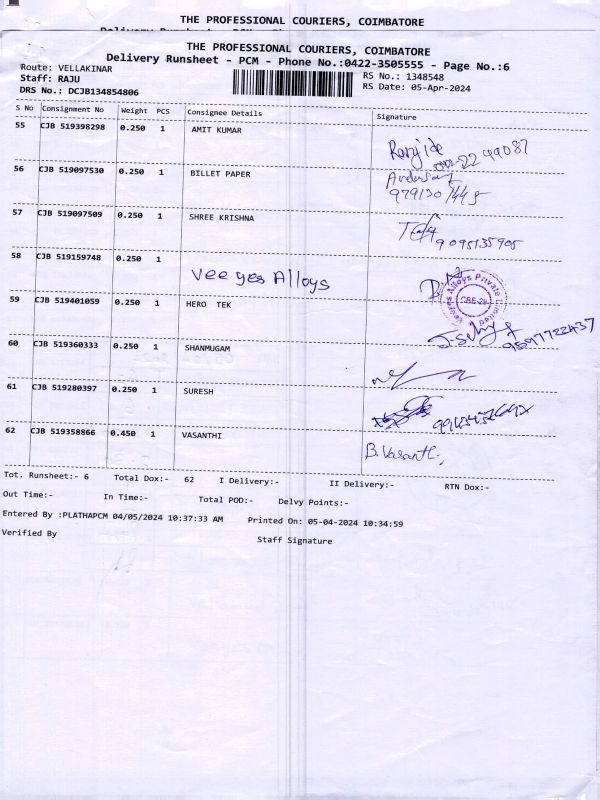 THE PROFESSIONAL COURIERS, COIMBATORE
THE PROFESSIONAL COURIERS, COIMBATORE
Delivery Runsheet - PCM - Phone No.:0422-3505555 - Page No.:6
Route: VELLAKINAR
RS No.: 1348548
Staff: RAJU
RS Date: 05-Apr-2024
DRS No.: DCJB134854806
S No Consignment No Weight PCS Consignee Details Signature
55 CJB 519398298 0.250 1 AMIT KUMAR
56 CJB 519097530 0.250 1 BILLET PAPER
57 CJB 519097509 0.250 1 SHREE KRISHNA
9095135905
58 CJB 519159748 0.250 1 Vee yes Alloys
59 CJB 519401059 0.250 1 HERO TEK
9597722437
60 CJB 519360333 0.250 1 SHANMUGAM
61 CJB 519280397 0.250 1 SURESH
62 CJB 519358866 0.450 1 VASANTHI B. Vasanthi
Tot. Runsheet:- 6 Total Dox:- 62 I Delivery:- II Delivery:- RTN Dox:-
Out Time:- In Time:- Total POD:- Delvy Points:-
Entered By :PLATHAPCM 04/05/2024 10:37:33 AM Printed On: 05-04-2024 10:34:59
Verified By Staff Signature